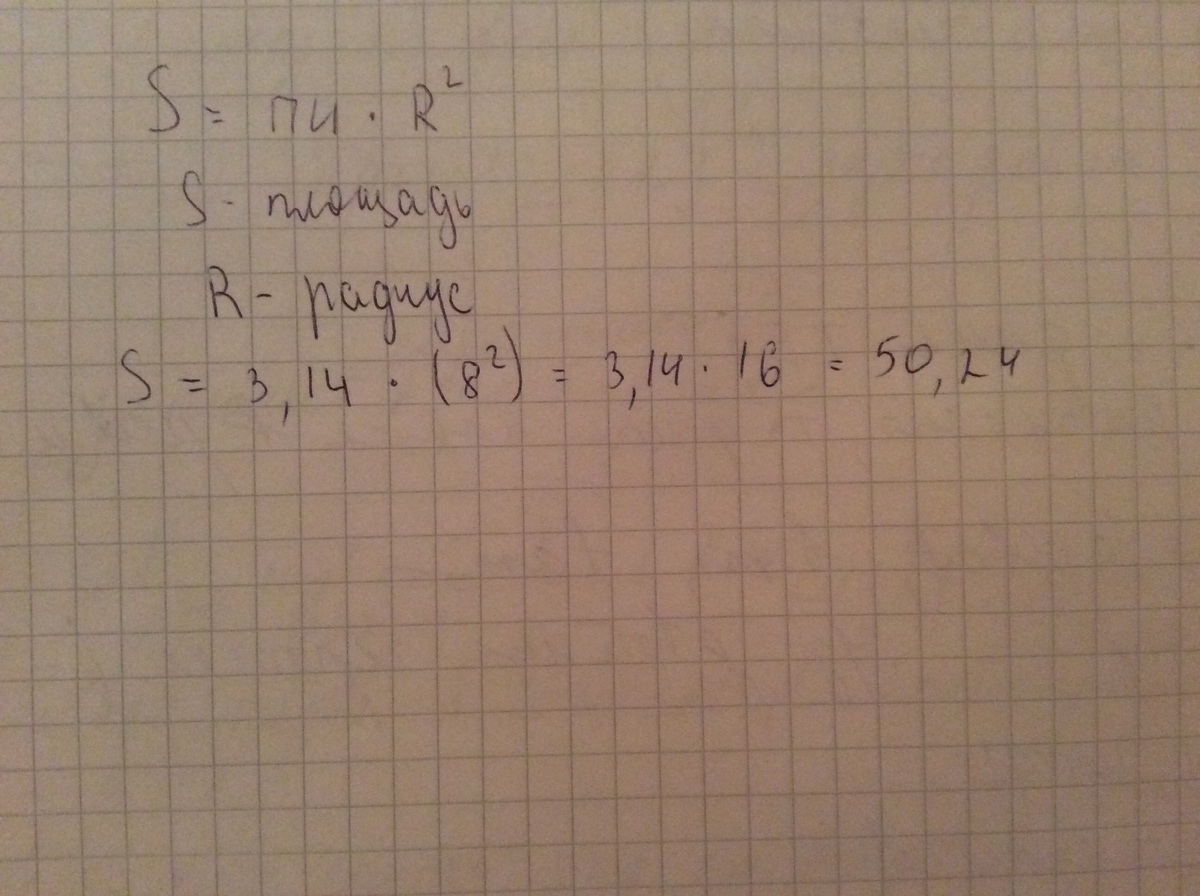 S = пи · R²
S - площадь
R - радиус
S = 3,14 · (8²) = 3,14 · 16 = 50,24